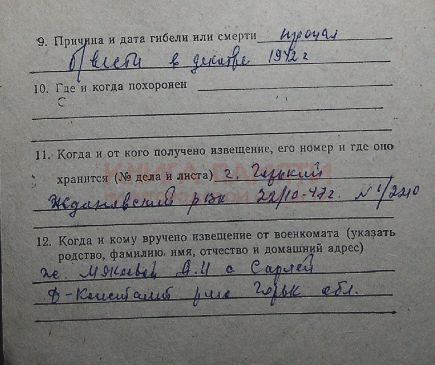 9. Причина и дата гибели или смерти пропал
б/вести в декабре 1942 г
10. Где и когда похоронен
С
11. Когда и от кого получено извещение, его номер и где оно
хранится (№ дела и листа) г. Горький
Ждановский рвк 22/10-47г. №1/2210
12. Когда и кому вручено извещение от военкомата (указать
родство, фамилию, имя, отчество и домашний адрес)
с Сарлей
Д-Константин р-на Горьк обл.